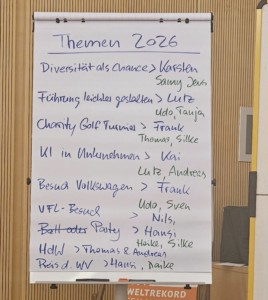 Themen 2026
Diversität als Chance > Karsten
Samy, Jens
Führung leichter gestalten > Lutz
Udo, Tanja
Charity Golf Turnier > Frank
Thomas, Silke
KI in Unternehmen > Kai
Lutz, Andreas
Besuch Volkswagen > Frank
Udo, Sven
VFL-Besuch > Nils,
Party > Hansi
Heike, Silke
HdW > Thomas & Andreas
Preis d. WV > Hansi,
WELTREKORD